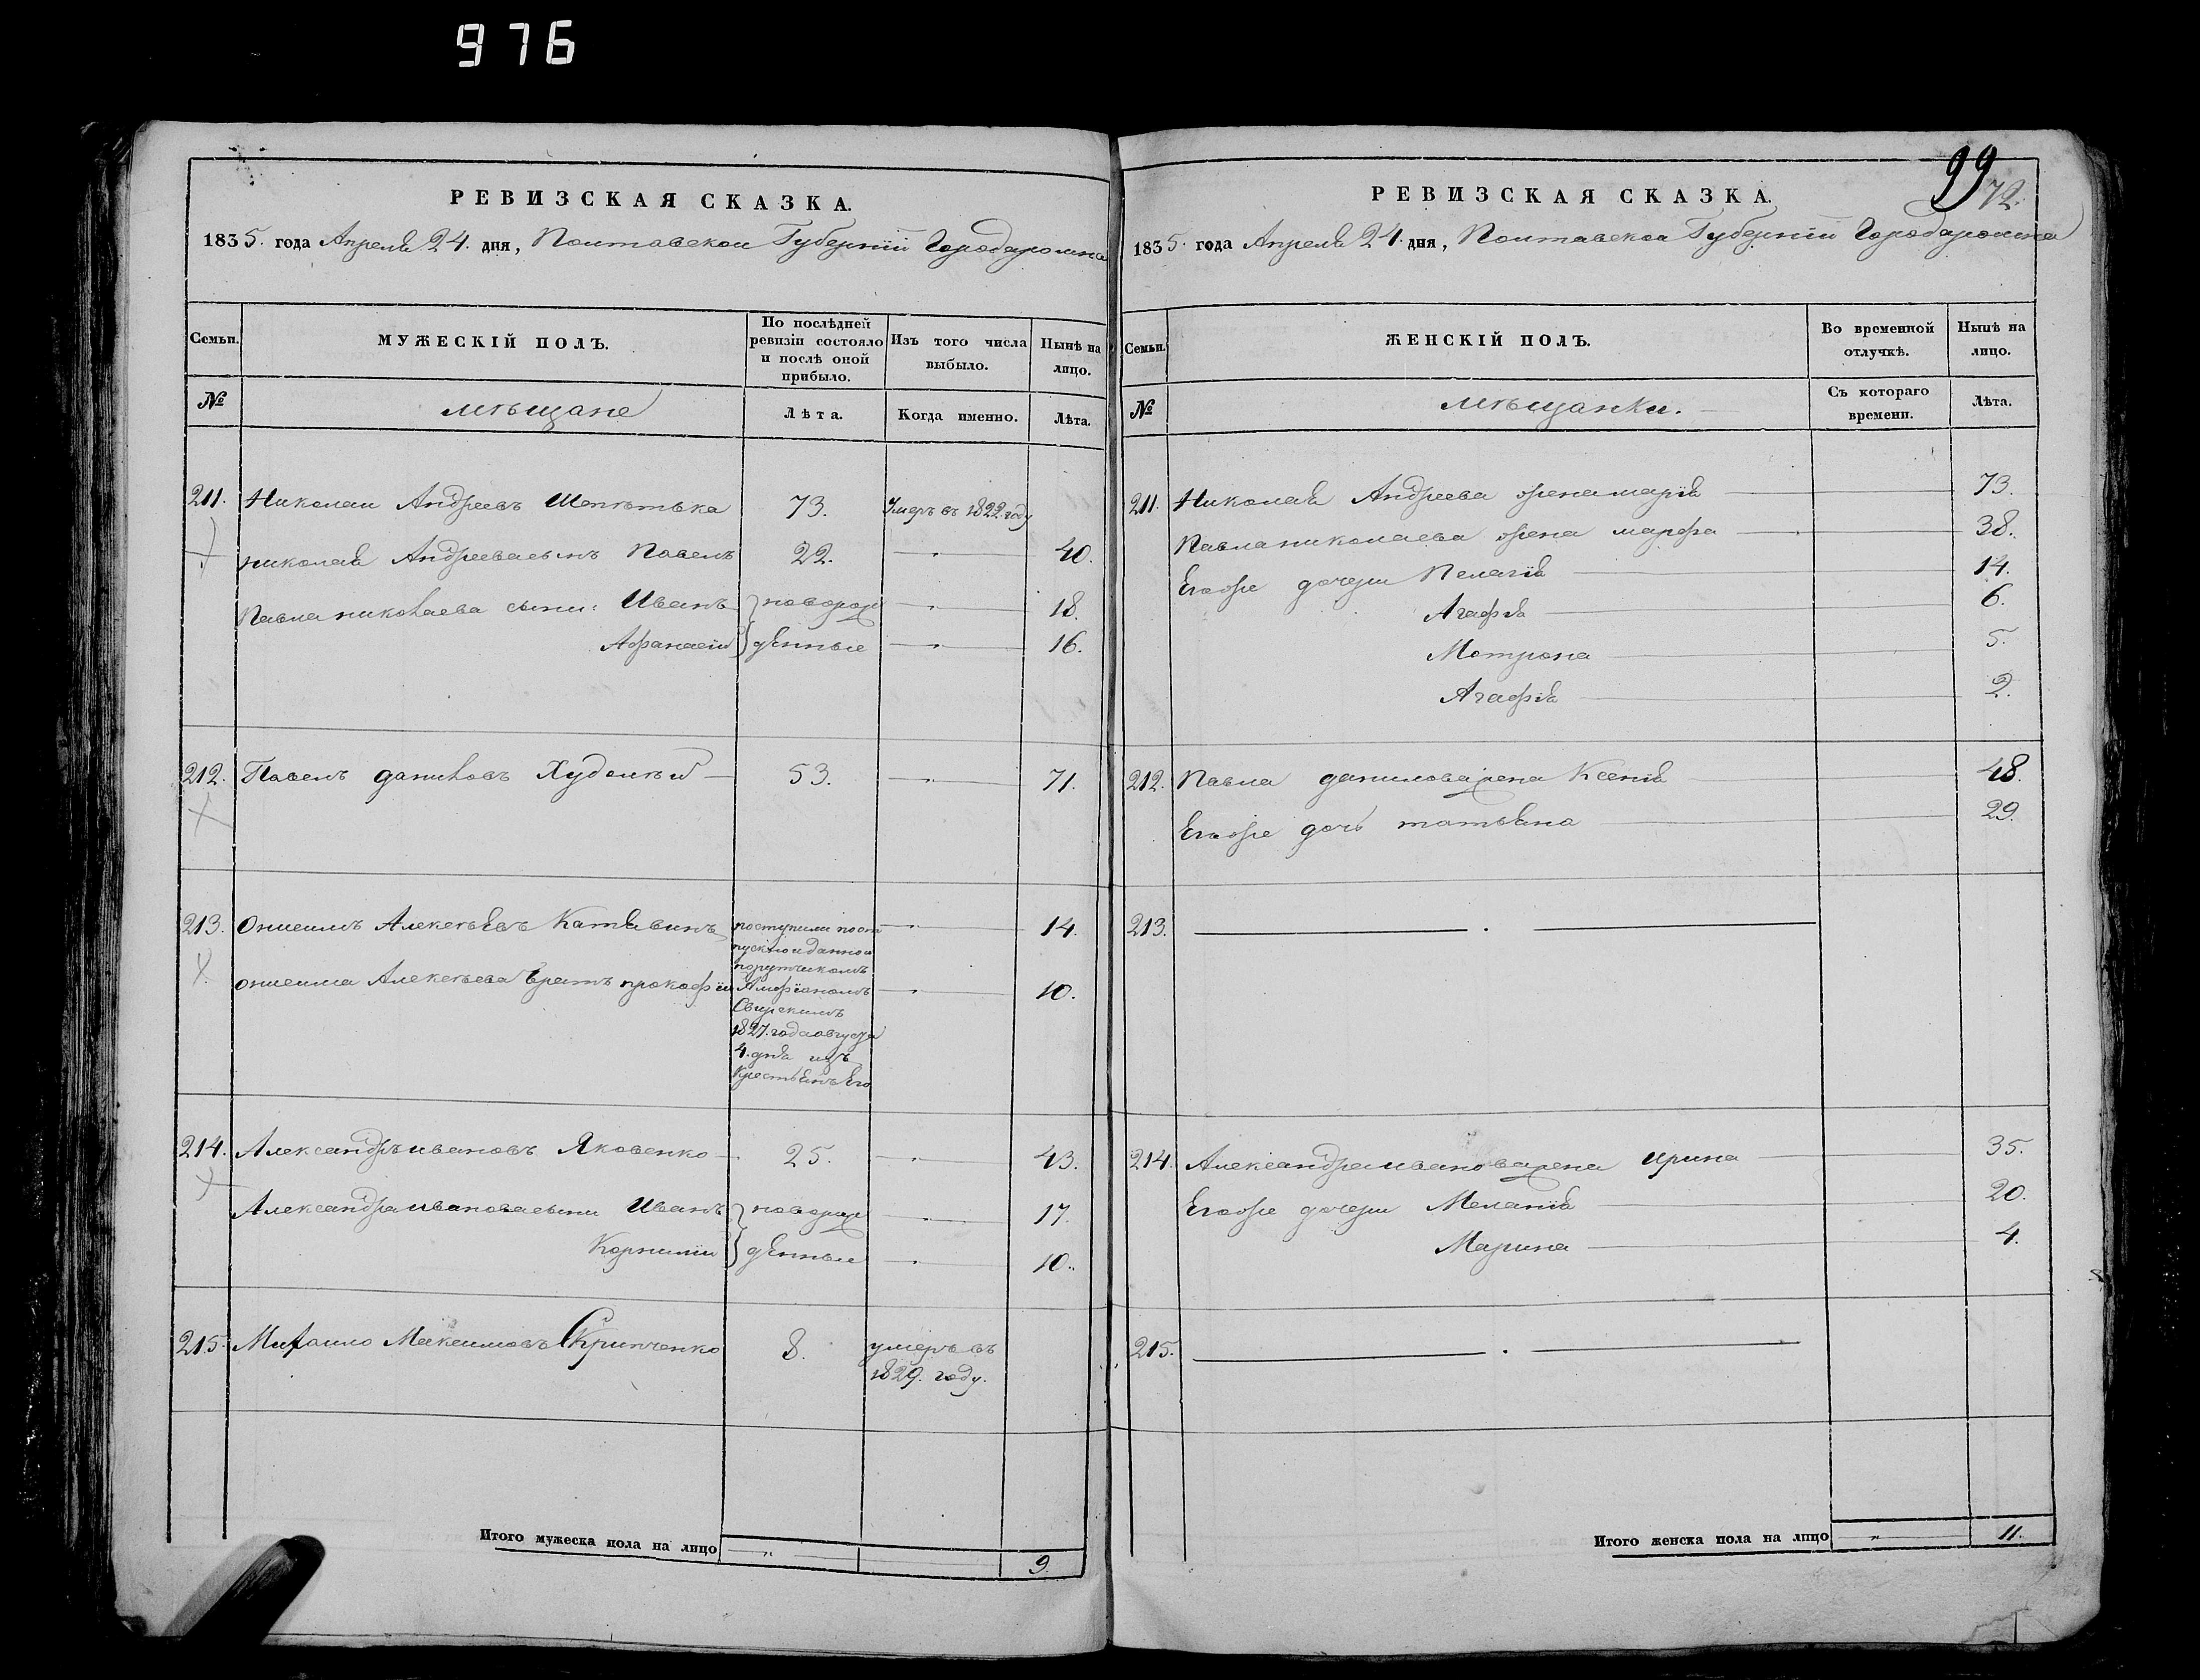 976
РЕВИЗСКАЯ СКАЗКА.
1835. года Апреля 24. дня, Полтавской Губернїи Города ромна
Семьи. МУЖЕСКІЙ ПОЛЪ. По послѣдней ревизіи состояло и послѣ оной прибыло. Изъ того числа выбыло. Нынѣ на лицо.
№ мѣщане Лѣта. Когда именно. Лѣта.
211. Николаи Андреевъ 73. Умеръ въ 1822. году
николая Андреева сынъ Павелъ 22. 40.
Павла николаева сыни: Иванъ новорож 18.
Афанасїи денные 16.
212. Павелъ даниловъ Худолѣй 53. 71.
213. Онисимъ Алексѣевъ поступили по от 14.
пускной данной
порутчикомъ
онисима Алексѣева братъ прокофїи 10.
Свирскимъ
1827. года августа
4. дня изъ
Крестьянъ Его
214. Александръ ивановъ Яковенко 25. 43.
Александра иванова сыни Иванъ новорож 17.
Корнилїи денные 10.
215. Михаило Максимовъ 8. умеръ въ
1829. году.
Итого мужеска пола на лицо 9.
99
72.
РЕВИЗСКАЯ СКАЗКА.
1835. года Апреля 24. дня, Полтавской Губернїи Города ромна
Семьи. ЖЕНСКІЙ ПОЛЪ. Во временной отлучкѣ. Нынѣ на лицо.
№ мѣщанки. Съ котораго времени. Лѣта.
211. Николая Андреева жена марїя 73.
Павла николаева жена марфа 38.
Егоже дочери Пелагїя 14.
Агафїя 6.
Мотрона 5.
Агафїя 2.
212. Павла данилова жена Ксенїя 48.
Егоже дочь татьяна 29.
213.
214. Александра иванова жена ирина 35.
Егоже дочери Меланїя 20.
Марина 4.
215.
Итого женска пола на лицо 11.